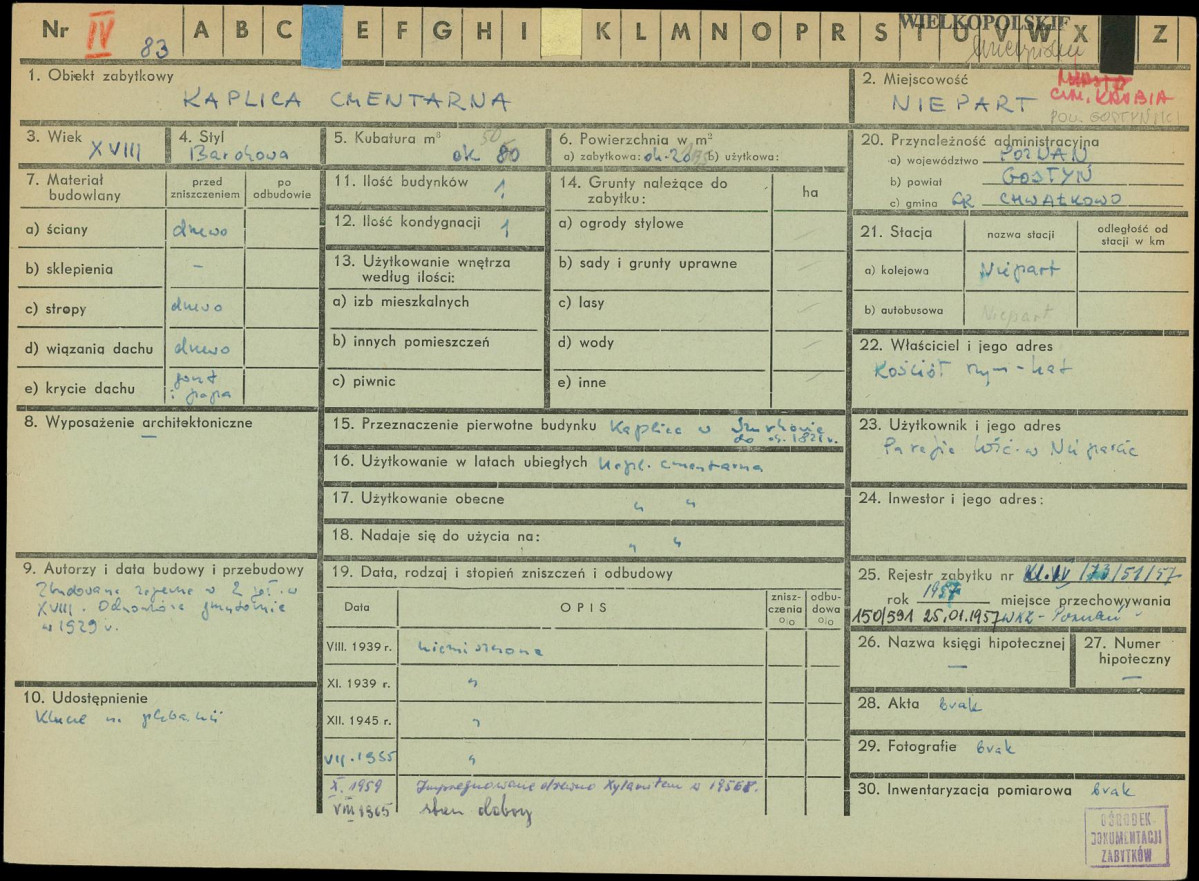 Nr IV 83 A B C E F G H I K L M N O P R S T U V W X Z
WIELKOPOLSKIE
1. Obiekt zabytkowy
KAPLICA CMENTARNA
2. Miejscowość
NIEPART
GM. KROBIA
POW. GOSTYŃSKI
3. Wiek XVIII
4. Styl Barokowa
5. Kubatura m³ ok 80
6. Powierzchnia w m²
a) zabytkowa: ok. 20 b) użytkowa:
20. Przynależność administracyjna
a) województwo POZNAŃ
b) powiat GOSTYŃ
c) gmina GR CHWAŁKOWO
7. Materiał budowlany
przed zniszczeniem
po odbudowie
a) ściany drewo
b) sklepienia –
c) stropy drewo
d) wiązania dachu drewo
e) krycie dachu gont i papa
11. Ilość budynków 1
12. Ilość kondygnacji 1
13. Użytkowanie wnętrza według ilości:
a) izb mieszkalnych
b) innych pomieszczeń
c) piwnic
14. Grunty należące do zabytku:
ha
a) ogrody stylowe
b) sady i grunty uprawne
c) lasy
d) wody
e) inne
21. Stacja
nazwa stacji
odległość od stacji w km
a) kolejowa Niepart
b) autobusowa Niepart
22. Właściciel i jego adres
Kościół rzym-kat
8. Wyposażenie architektoniczne
–
15. Przeznaczenie pierwotne budynku Kaplica w
do
16. Użytkowanie w latach ubiegłych kapl. cmentarna
17. Użytkowanie obecne " "
18. Nadaje się do użycia na: " "
23. Użytkownik i jego adres
Parafia kośc. w Nieparcie
24. Inwestor i jego adres:
9. Autorzy i data budowy i przebudowy
Zbudowana zapewne w 2 poł. w
XVIII. Odnowiona gruntownie
w 1929 r.
10. Udostępnienie
Klucze na plebanii
19. Data, rodzaj i stopień zniszczeń i odbudowy
Data
OPIS
znisz-czenia %
odbu-dowa %
VIII. 1939 r. niezniszczona
XI. 1939 r. "
XII. 1945 r. "
VII. 1955 "
X. 1959 Impregnowane drzewo Xylamitem w 1958 r.
VIII 1965 stan dobry
25. Rejestr zabytku nr
rok 1957 miejsce przechowywania
150/591 25.01.1957 WKZ - Poznań
26. Nazwa księgi hipotecznej
–
27. Numer hipoteczny
–
28. Akta brak
29. Fotografie brak
30. Inwentaryzacja pomiarowa brak
OŚRODEK
DOKUMENTACJI
ZABYTKÓW